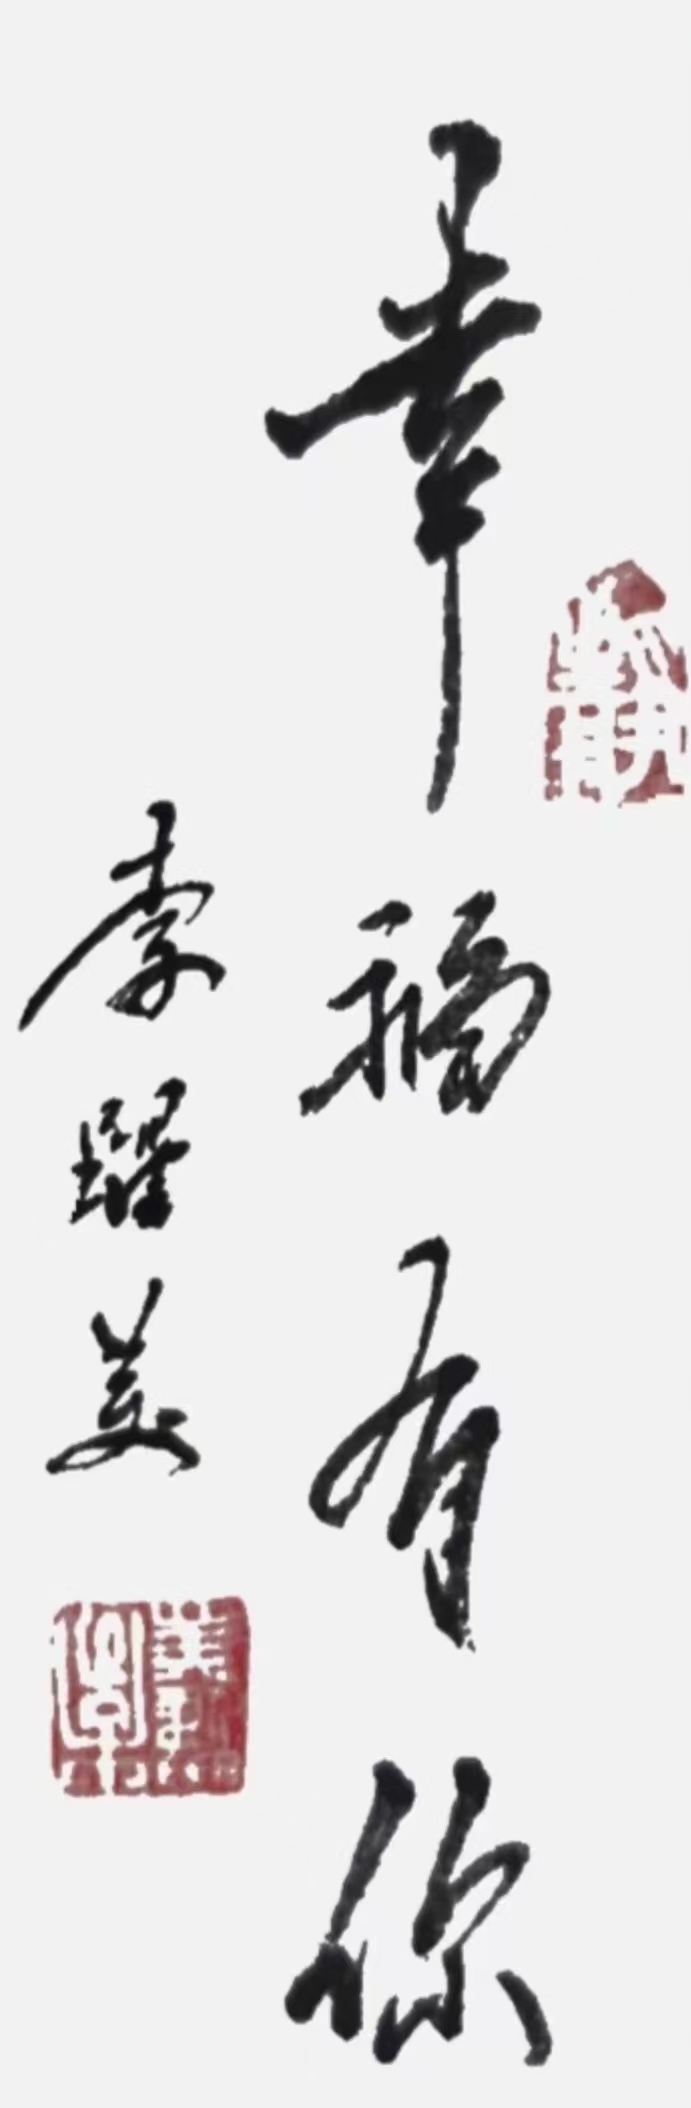 幸福有你
李躍美